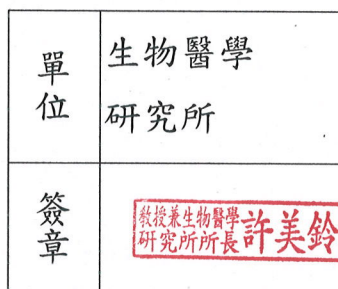 單位
生物醫學
研究所
簽章
教授兼生物醫學
研究所所長
許美鈴